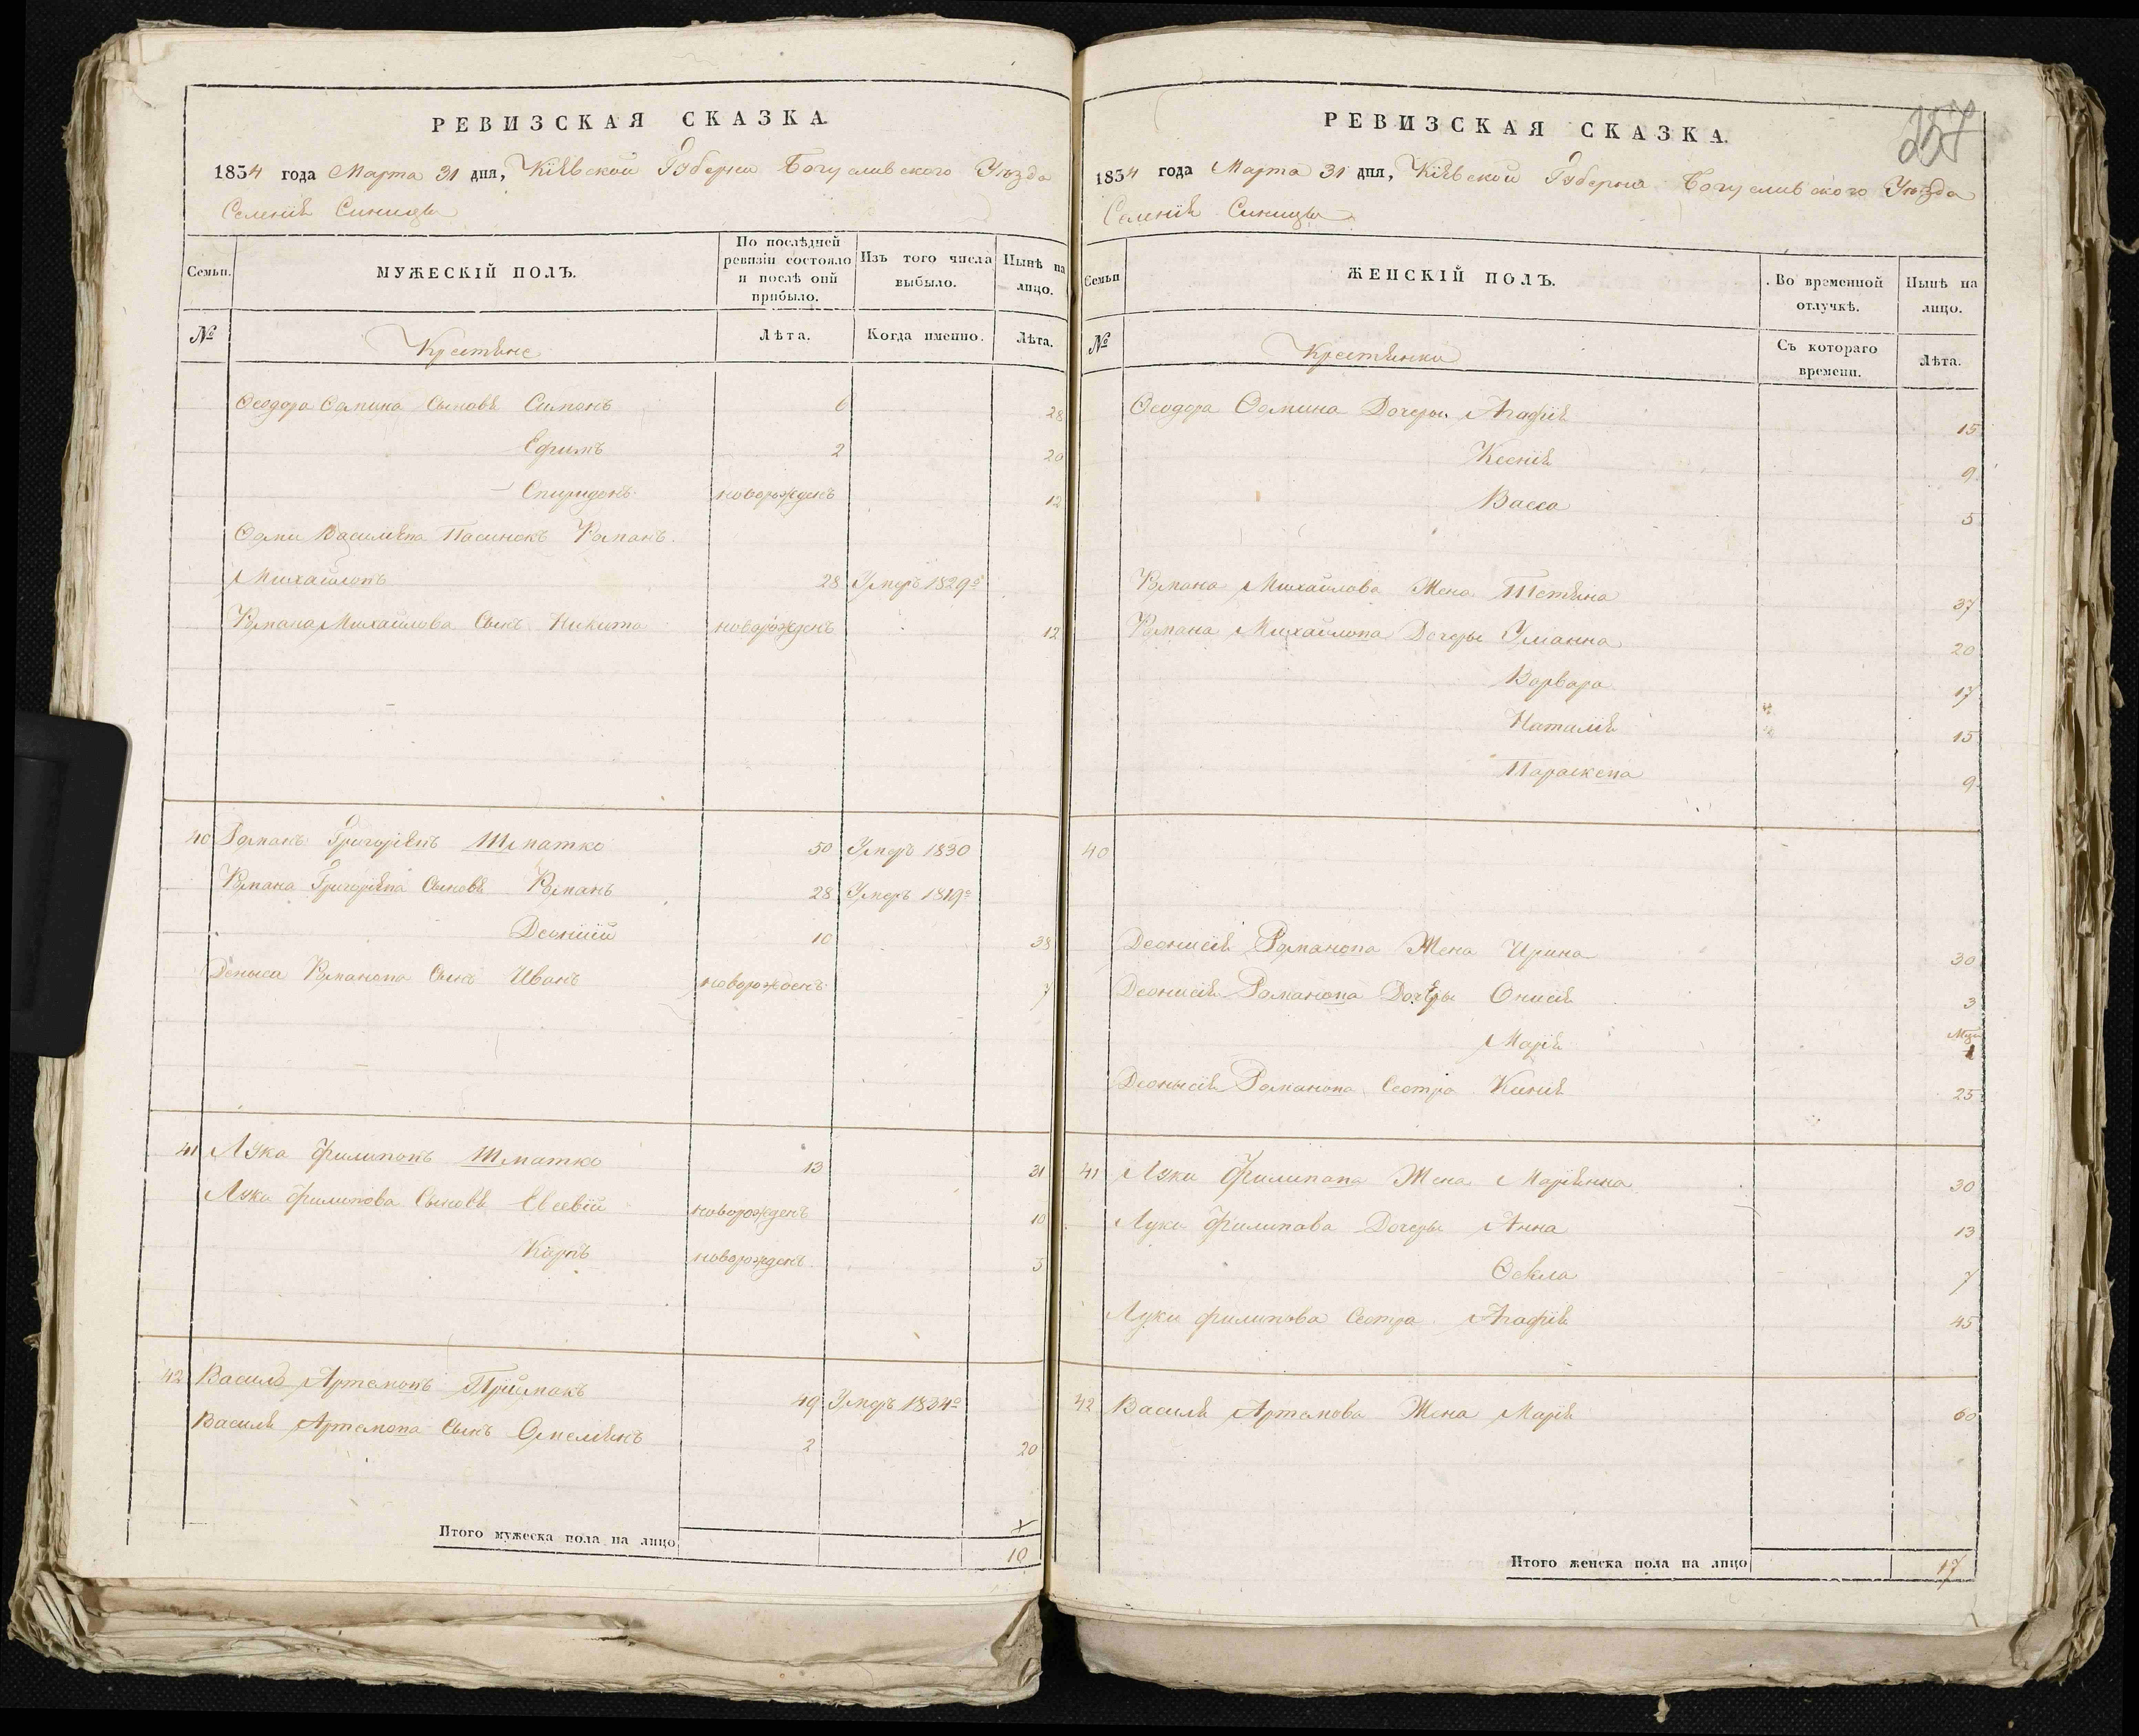 РЕВИЗСКАЯ СКАЗКА.
1834 года Марта 31 дня, Кіѣвской Губерни Богуславского Уѣзда
Селенія Синицы
Семьи. МУЖЕСКІЙ ПОЛЪ. По послѣдней ревизіи состояло и послѣ оній прибыло. Изъ того числа выбыло. Нынѣ на лицо.
№ Крестяне Лѣта. Когда именно. Лѣта.
Феодора Сомина Сыновя Симонъ 6 28
Ефимъ 2 20
Спиридонъ новорожденъ 12
Василіева Пасинокъ Романъ
Михайловъ 28 Умеръ 1829го
Романа Михайлова Сынъ Никита новорожденъ 12
40 Романъ Григоріевъ Шматко 50 Умеръ 1830
Романа Григоріева Сыновя Романъ 28 Умеръ 1819го
Деонисій 10 38
Дениса Романова Сынъ Иванъ новорожденъ 7
41 Лука Филиповъ Шматко 13 31
Луки Филипова Сыновя Евсевій новорожденъ 10
Карпъ новорожденъ 3
42 Василь Артемовъ Пріймакъ 49 Умеръ 1834го
Василя Артемова Сынъ Омелянъ 2 20
Итого мужеска пола на лицо 10
РЕВИЗСКАЯ СКАЗКА.
257
1834 года Марта 31 дня, Кіѣвской Губерни Богуславского Уѣзда
Селенія Синицы
Семьи ЖЕНСКІЙ ПОЛЪ. Во временной отлучкѣ. Нынѣ на лицо.
№ Крестянки Съ котораго времени. Лѣта.
Феодора Фомина Дочеры Агафія 15
Ксенія 9
Васса 5
Романа Михайлова Жена Тетяна 37
Романа Михайлова Дочеры Улианна 20
Варвара 17
Наталія 15
Параскева 9
40
Деонисія Романова Жена Ирина 30
Деонисія Романова Дочеры Онисія 3
Марія 1
Деонысія Романова Сестра Ксенія 25
41 Луки Филипова Жена Маріянна 30
Луки Филипова Дочеры Анна 13
Фекла 7
Луки Филипова Сестра Агафія 45
42 Василя Артемова Жена Марія 60
Итого женска пола на лицо 17